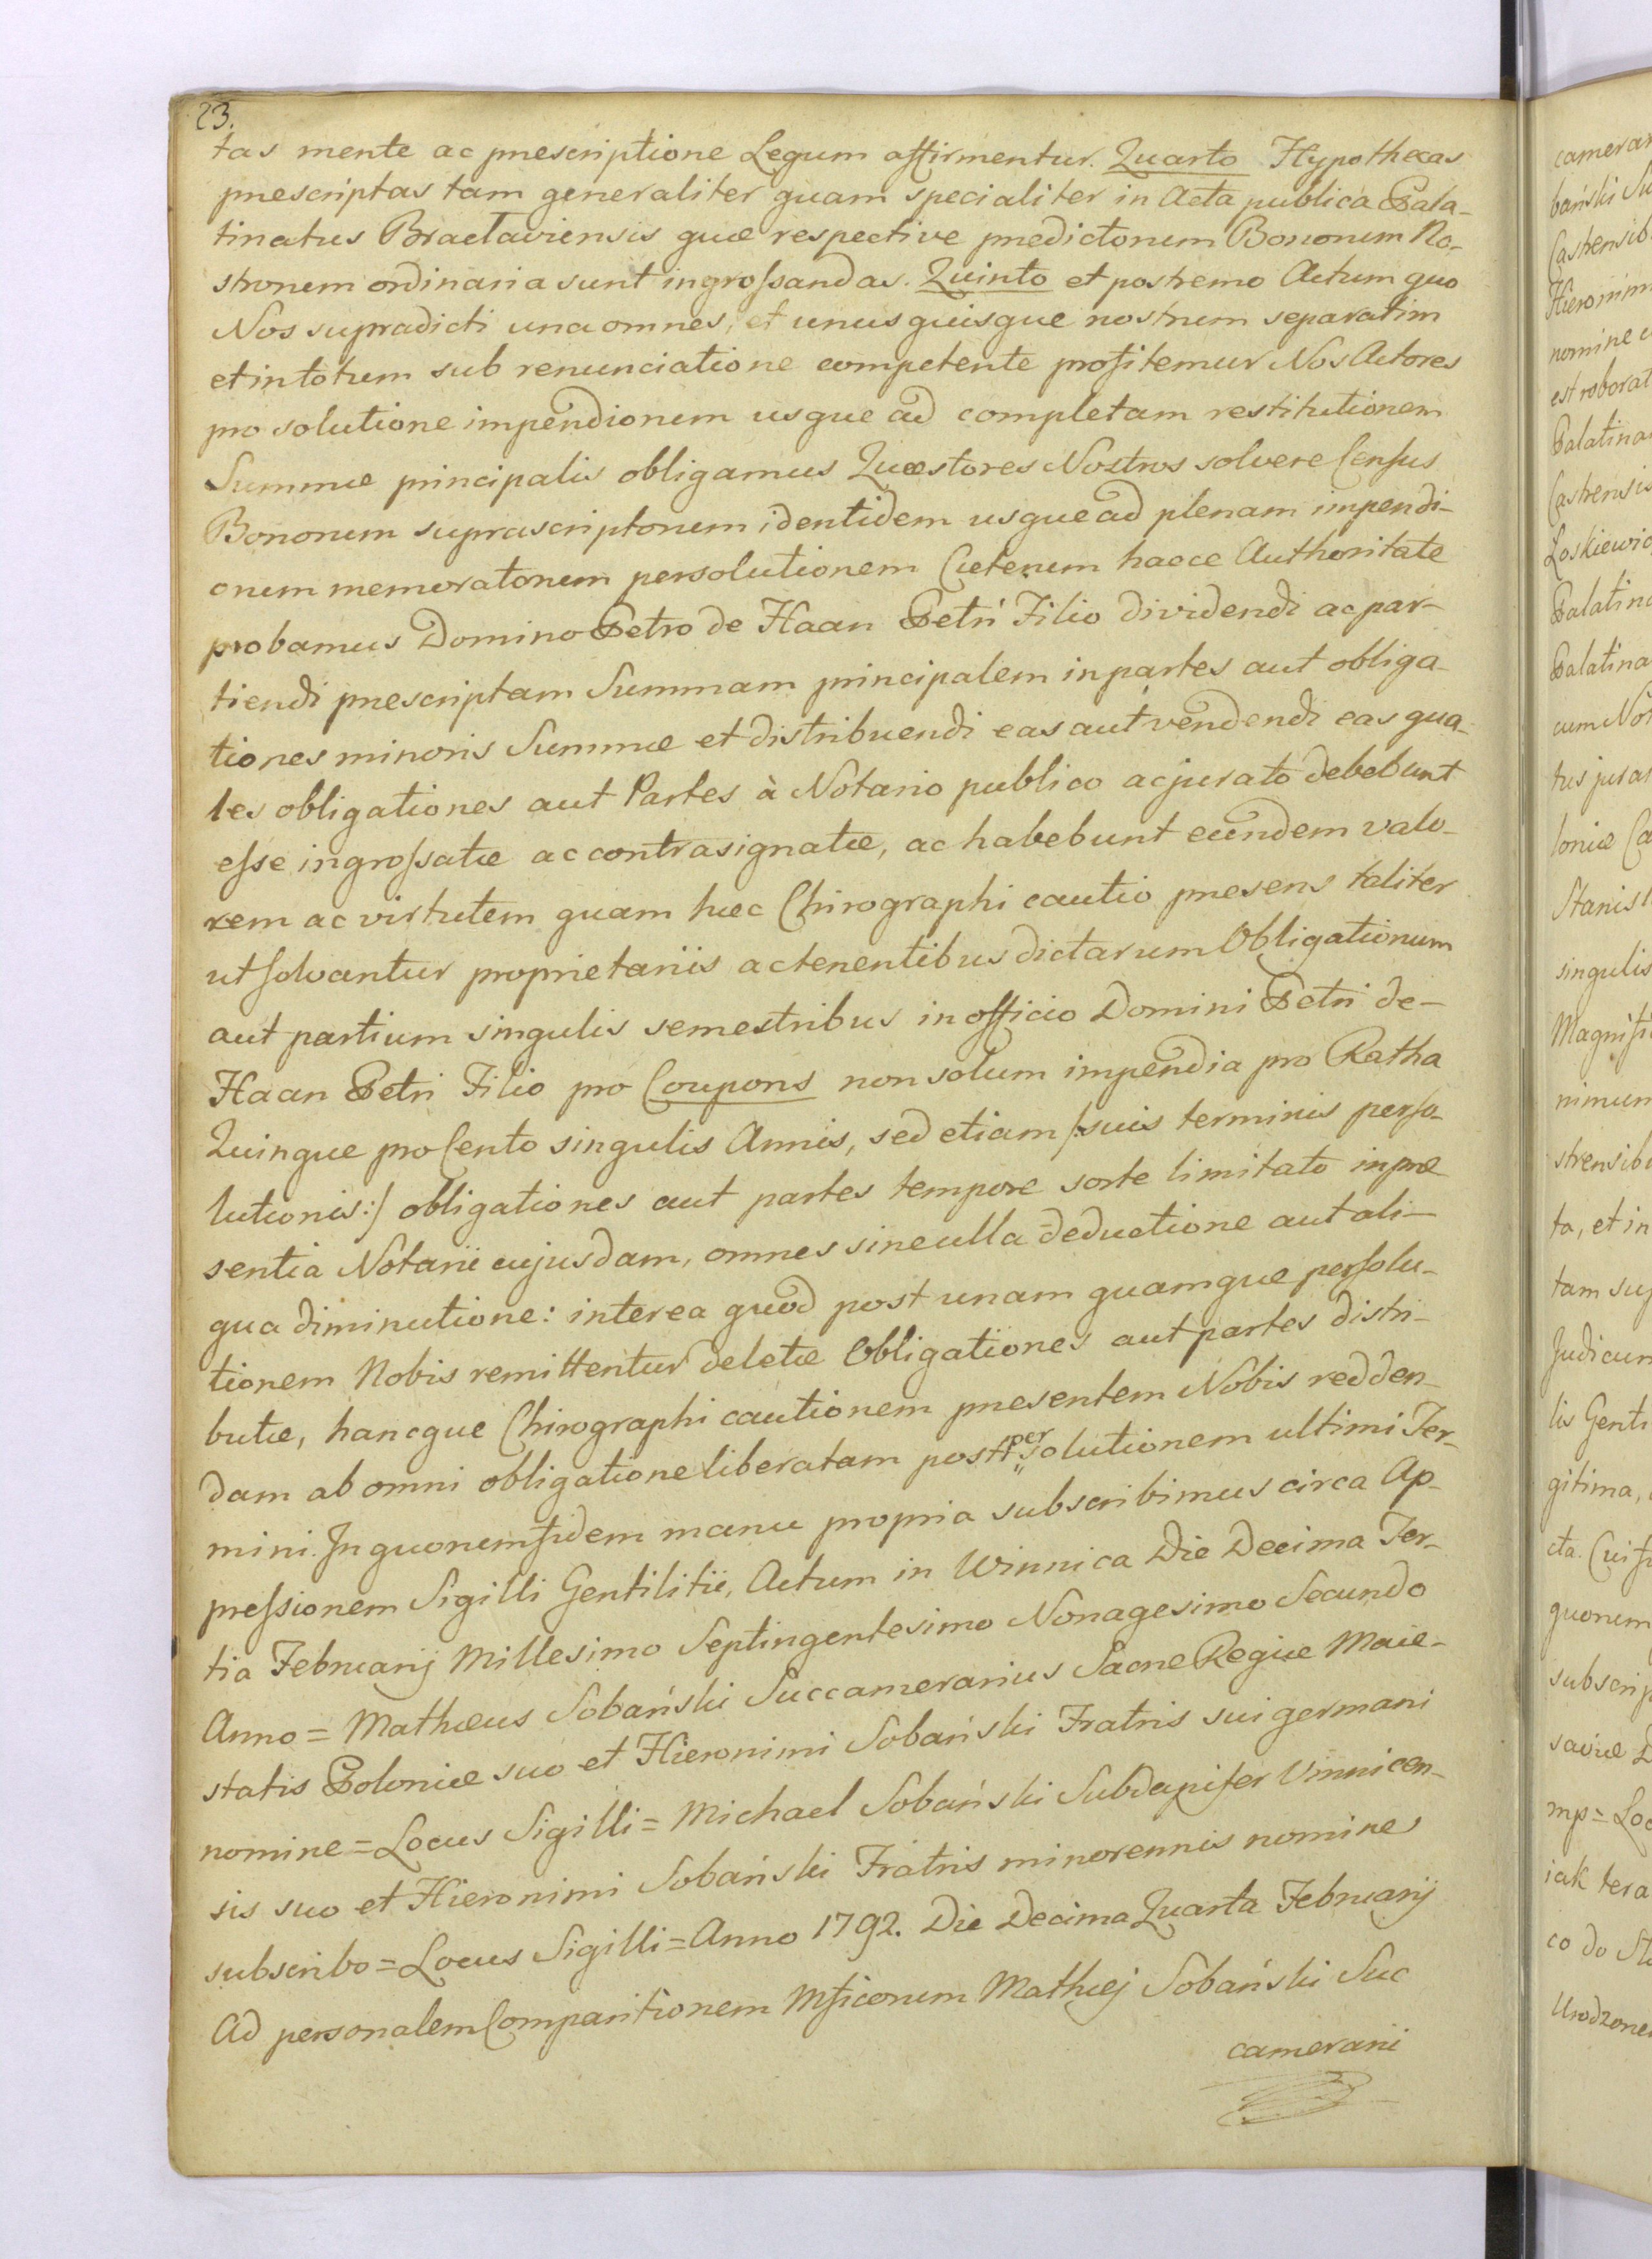 23.
tas mente ac prescriptione Legum affirmentur. Quarto Hypothecas
prescriptas tam generaliter quam specialiter in Acta publica Pala-
tinatus Braclaviensis quæ respective predictorum Bonorum No-
strorum ordinaria sunt ingrossandas. Quinto et postremo Actum quo
Nos supradicti una omnes, et unusquisque nostrum separatim
et in totum sub renunciatione competente profitemur Nos Actores
pro solutione impendiorum usque ad completam restitutionem
Summæ principalis obligamus Quæstores Nostros solvere Census
Bonorum suprascriptorum identidem usque ad plenam impendi-
orum memoratorum persolutionem Cæterum haece Authoritate
probamus Domino Petro de Haan Petri Filio dividendi ac par-
tiendi prescriptam Summam principalem in partes aut obliga-
tiones minoris Summæ et distribuendi eas aut vendendi eas qua-
les obligationes aut Partes à Notario publico ac jurato debebunt
esse ingrossatæ ac contrasignatæ, ac habebunt eundem valo-
rem ac virtutem quam hæc Chirographi cautio presens taliter
ut solvantur proprietariis ac tenentibus dictarum Obligationum
aut partium singulis semestribus in officio Domini Petri de-
Haan Petri Filio pro Coupons non solum impendia pro Ratha
Quinque pro Cento singulis Annis, sed etiam /:suis terminis perso-
lutionis:/ obligationes aut partes tempore sorte limitato in præ
sentia Notarii cujusdam, omnes sine ulla deductione aut ali-
qua diminutione: interea quod post unam quamque persolu-
tionem Nobis remittentur deletæ Obligationes aut partes distri-
butæ, hancque Chirographi cautionem presentem Nobis redden-
dam ab omni obligatione liberatam post persolutionem ultimi Ter-
mini. In quorum fidem manu propria subscribimus circa Ap-
pressionem Sigilli Gentilitii, Actum in Winnica Die Decima Ter-
tia Februarij Millesimo Septingentesimo Nonagesimo Secundo
Anno = Mathæus Sobański Succamerarius Sacræ Regiæ Maie-
statis Poloniæ suo et Hieronimi Sobański Fratris sui germani
nomine = Locus Sigilli = Michael Sobański Subdapifer Vinnicen-
sis suo et Hieronimi Sobański Fratris minorennis nomine
subscribo = Locus Sigilli = Anno 1792. Die Decima Quarta Februarij
Ad personalem Comparitionem Mficorum Mathæj Sobański Suc
camerarii
camerar
bański Su
Castrensib
Hieronim
nomine
est roborat
Palatina
Castrensis
Łoskiewic
Palatina
Palatina
cum Not
tus jurat
loniæ Ca
Stanisł
singulis
Magnifi
nimum
strensibu
ta, et in
tam sup
Judicum
lis Genti
gitima,
cta. Cui
quorum
subscrip
saviæ
mp = Loc
iak tera
co do Sta
Urodzone